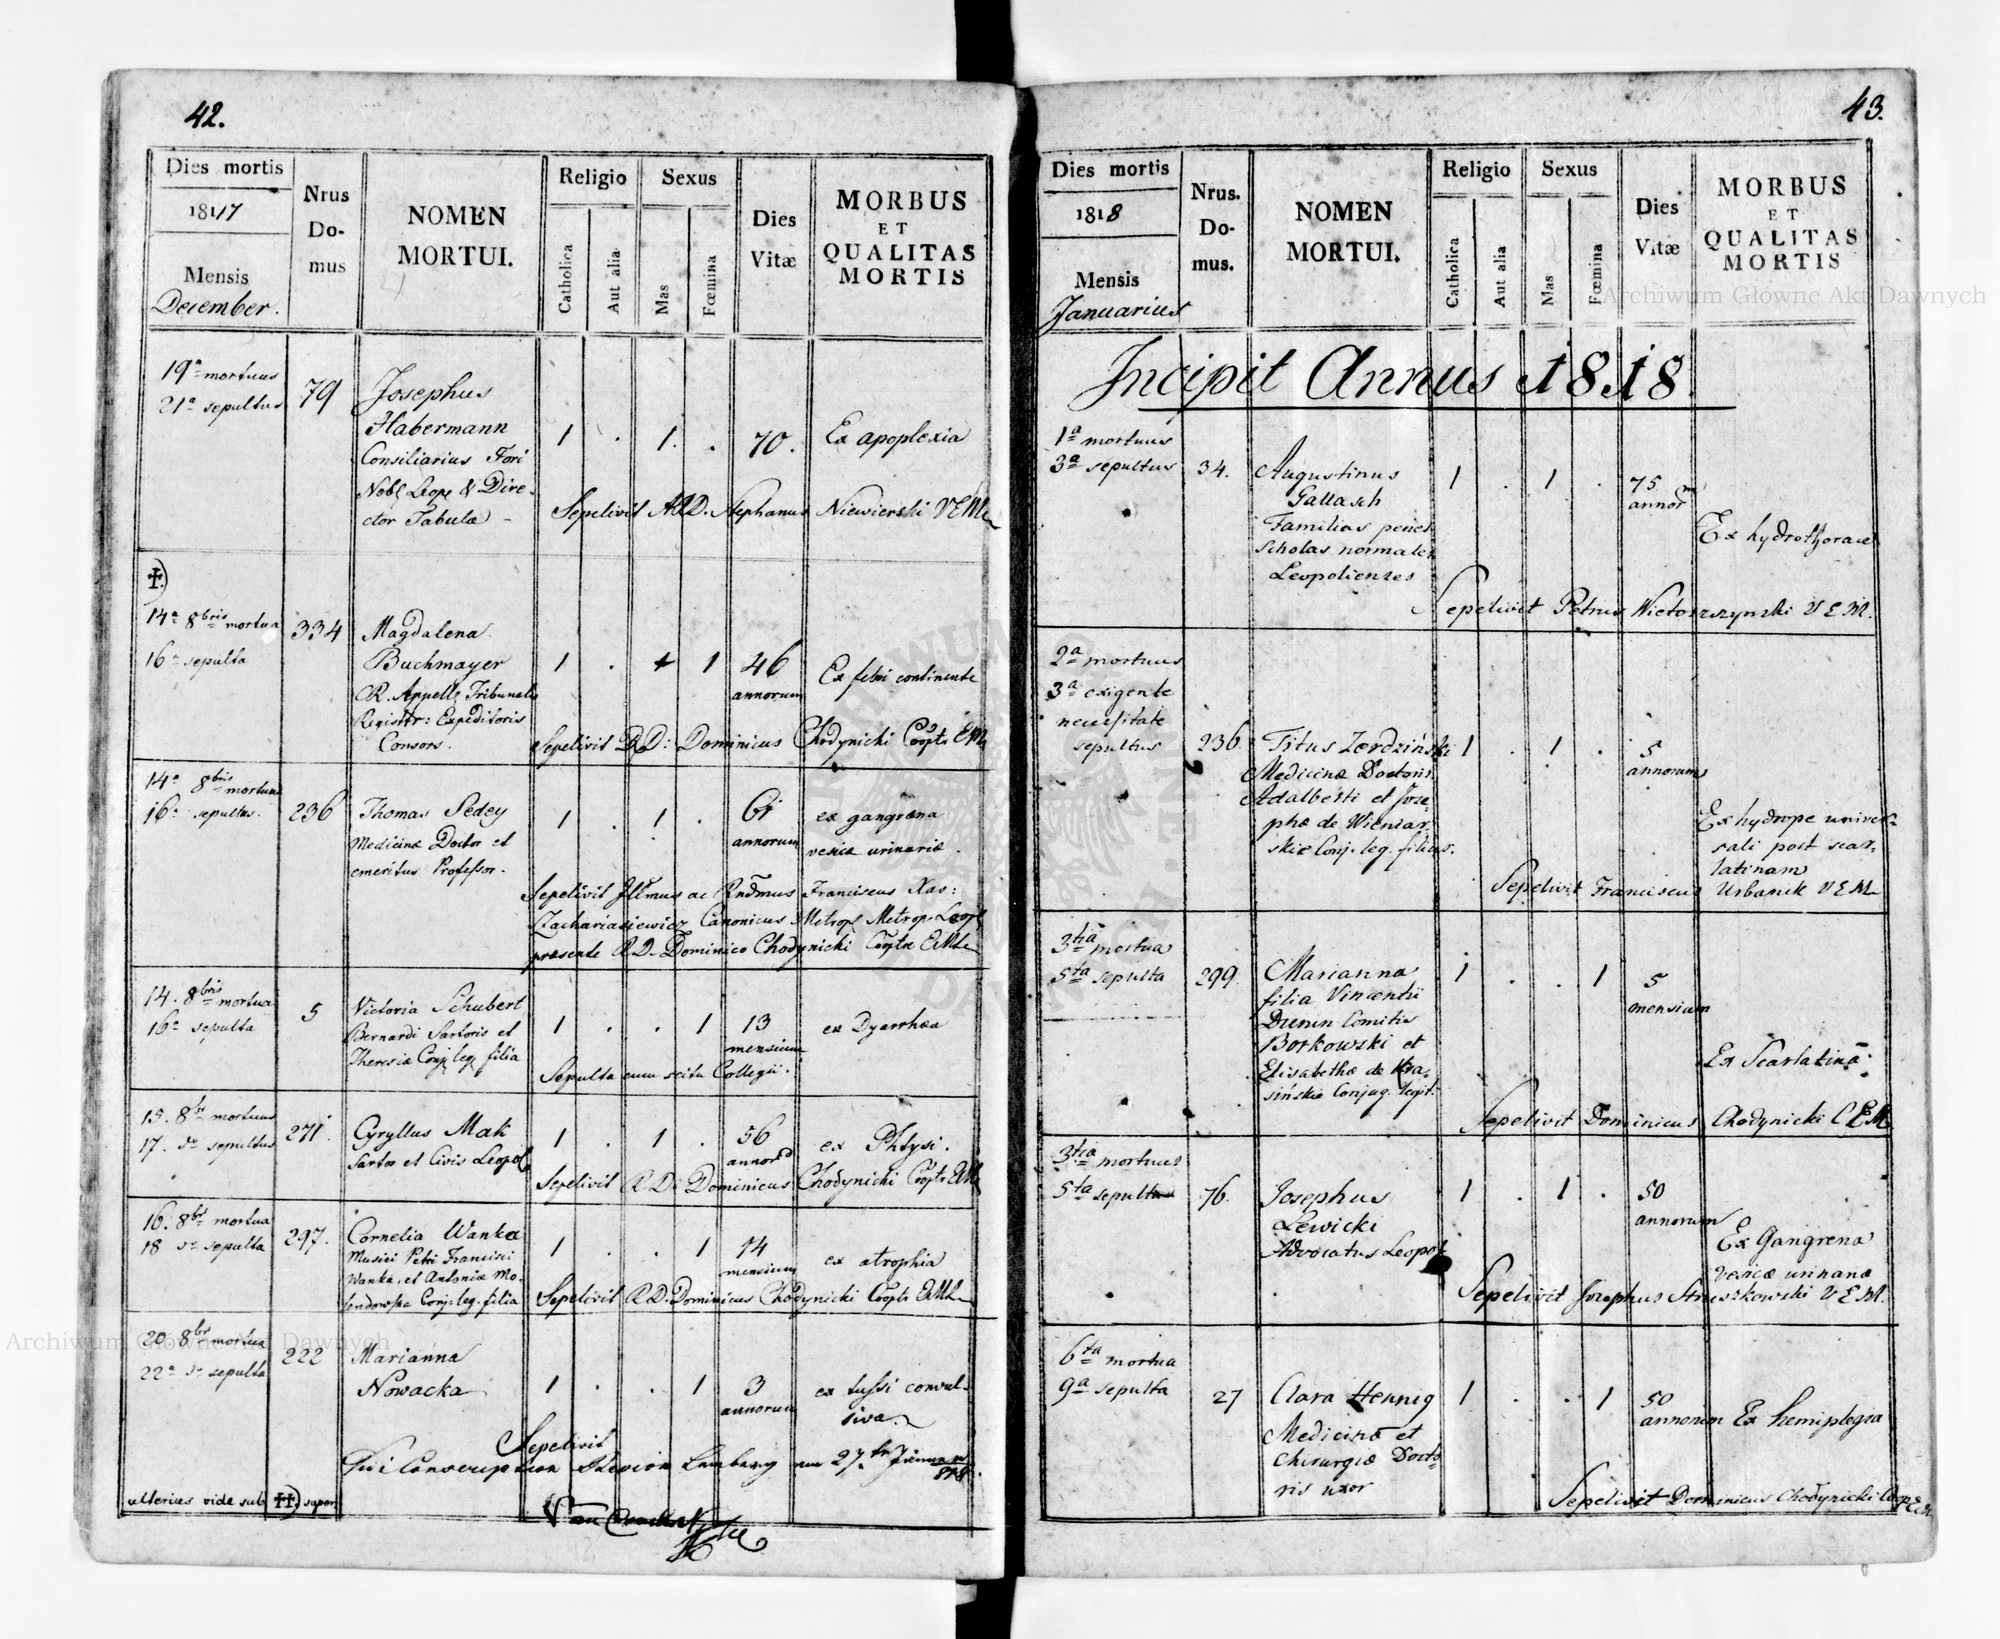 42.
Dies mortis
1817
Mensis
December.
Nrus
Do-
mus
NOMEN
MORTUI.
Religio
Catholica
Aut alia
Sexus
Mas
Fœmina
Dies
Vitæ
MORBUS
ET
QUALITAS
MORTIS
19a mortuus
21a sepultus
79
Josephus
Habermann
Consiliarius Fori
Nobl Leop & Dire-
ctor Tabulæ
1 . 1. .
70.
Ex apoplexia
Sepelivit A.D. Stephanus Niewierski VEM
‡)
14a 8bris mortua
16a sepulta
334
Magdalena
Buchmayer
R. Appell Tribunalis
Registr: Expeditoris
Consors.
1 . 1
46
annorum
Ex febri continente
Sepelivit R.D: Dominicus Chodynicki Coopr EM
14a 8bris mortuus
16a sepultus.
236
Thomas Sedey
Medicinæ Doctor et
emeritus Professor.
1 . 1 .
61
annorum
ex gangræna
vesicæ urinariæ.
Sepelivit Illmus ac Rndmus Franciscus Xav:
Zachariasiewicz Canonicus Metrop Leopl
præsente R.D. Dominico Chodynicki Cooptre EM
14. 8bris mortua
16a sepulta
5
Victoria Schubert
Bernardi Sartoris et
Theresiæ Conj leg filia
1 . . 1
13
mensium
ex Dyarrhæa
Sepulta cum scitu Collegii.
15. 8br mortuus
17. do sepultus
271.
Cyryllus Mak
Sartor et Civis Leopol
1 . 1 .
56
annor
ex Phtysi.
Sepelivit R.D. Dominicus Chodynicki Coopr EM
16. 8br mortua
18 do sepulta
297.
Cornelia Wanka
Musici Petri Francisci
Wanka, et Antoniæ Mo-
lendowska Conj leg. filia
1 . . 1
14
mensium
ex atrophia
Sepelivit R.D. Dominicus Chodynicki Coopr EM
20. 8br mortua
22a do sepulta
222
Marianna
Nowacka
1 . . 1
3
annorum
ex tussi convul-
siva.
Sepelivit
Lemberg 27
818.
ulterius vide sub ‡‡) super
43.
Dies mortis
1818
Mensis
Januarius
Nrus.
Do-
mus.
NOMEN
MORTUI.
Religio
Catholica
Aut alia
Sexus
Mas
Fœmina
Dies
Vitæ
MORBUS
ET
QUALITAS
MORTIS
Incipit Annus 1818.
1a mortuus
3a sepultus
34.
Augustinus
Gallasch
Familias penes
Scholas normales
Leopolienses
1 . 1 .
75
annor
Ex hydrothorace
Sepelivit Petrus Wietoszczynski VEM.
2a mortuus
3a exigente
necessitate
sepultus
236.
Titus Zerdziński
Medicinæ Doctoris
Adalberti et Jose-
phæ de Wieniar-
skie Conj. leg. filius.
1 . 1 .
5
annorum
Ex hydrope univer-
sali post scar-
latinam
Sepelivit Franciscus Urbanik VEM
3tia mortua
5ta sepulta
299
Marianna
filia Vincentii
Dunin Comitis
Borkowski et
Elisabethæ de Kra-
sińskie Conjug. legit.
1 . . 1
5
mensium
Ex Scarlatina.
Sepelivit Dominicus Chodynicki CEM
3tia mortuus
5ta sepultus
76.
Josephus
Lewicki
Advocatus Leopol
1 . 1 .
50
annorum
Ex Gangrena
vesicæ urinariæ
Sepelivit Josephus Struszkowski VEM.
6ta mortua
9a sepulta
27
Clara Hennig
Medicinæ et
Chirurgiæ Docto-
ris uxor
1 . . 1
50
annorum
Ex hemiplegia
Sepelivit Dominicus Chodynicki Coop EM
Archiwum Główne Akt Dawnych
Archiwum Główne Akt Dawnych